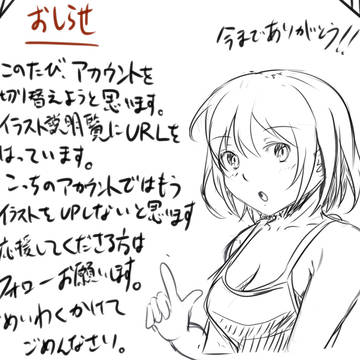 おしらせ
今までありがとう!!
このたび、アカウントを
切り替えようと思います。
イラスト説明覧にURLを
はっています。
こっちのアカウントではもう
イラストをUPしないと思います
応援してくださる方は
フォローお願いします。
めいわくかけて
ごめんなさい。